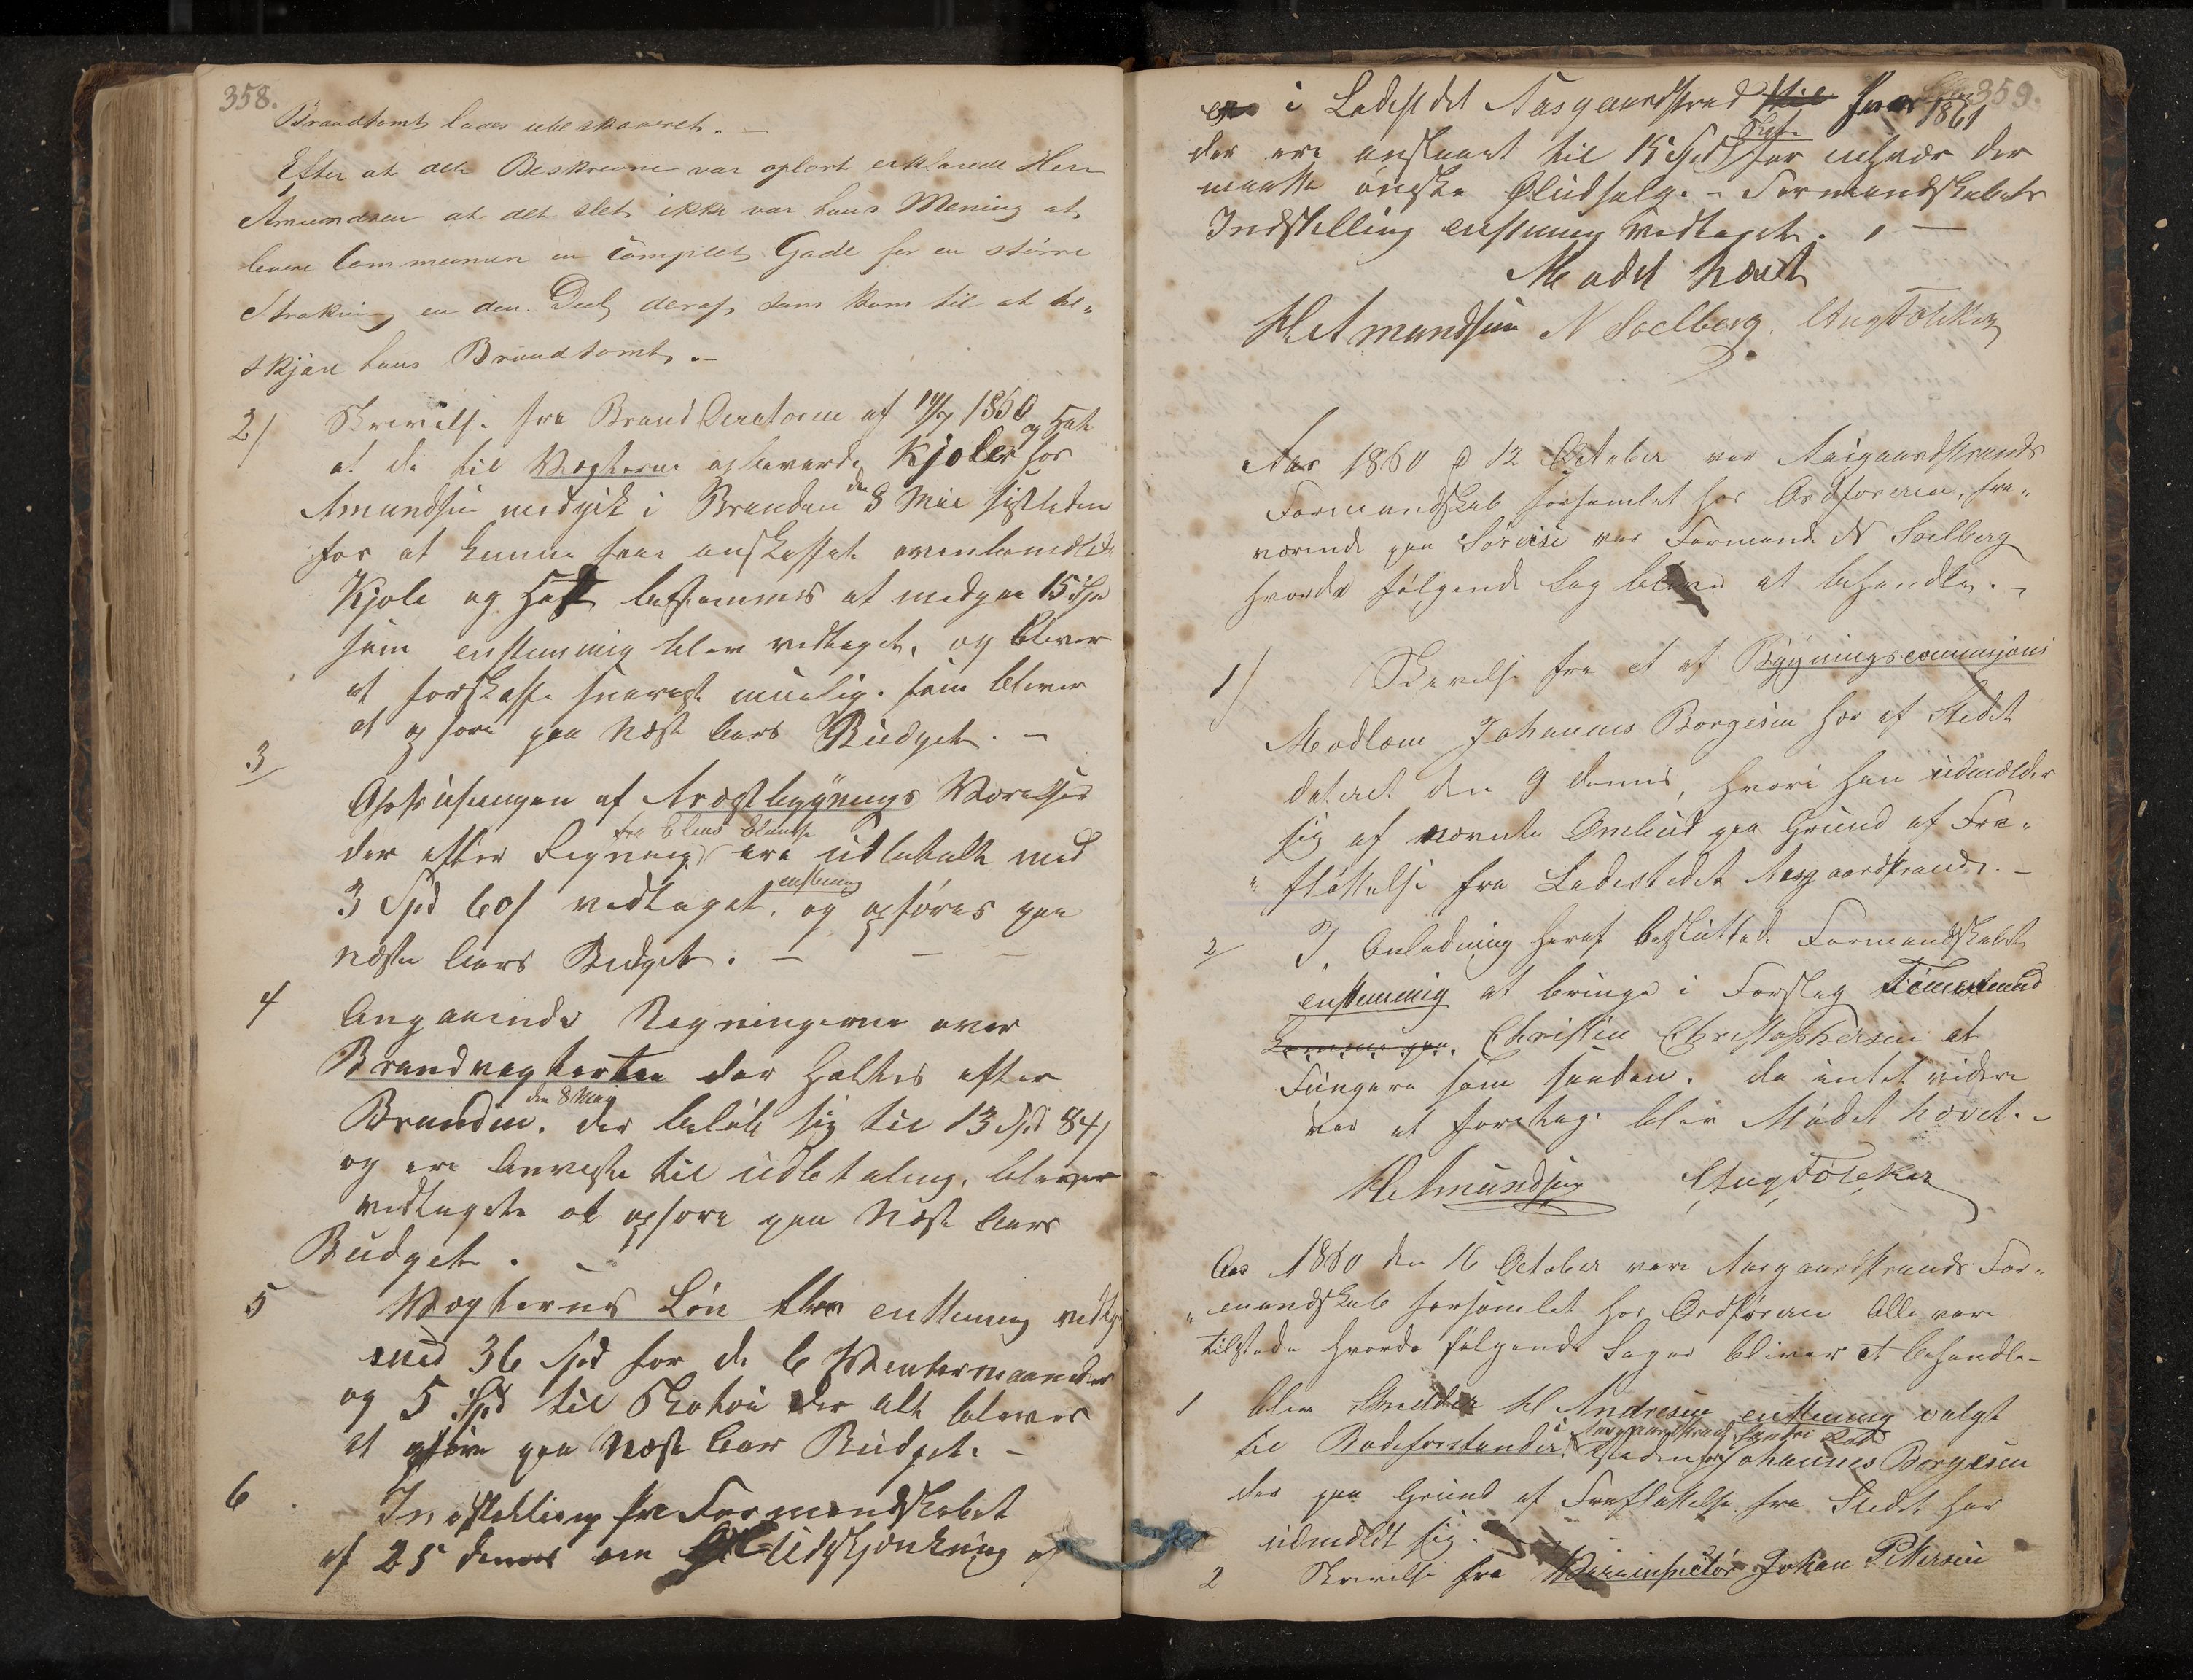 358.
Brandtomt lades ubeskaaret. –
Efter at dette Beskrevne var oplæst erklærede Herr
Amundsen at det slet ikke var hans Mening at
levere Communen en complet Gade for en större
Strækning en den Deel deraf, som kom til at be-
skjære hans Brandtomt. –
2) Skrivelse fra Brand Directeuren af 14/7 1860
at de til Vægterne opbevarede Kjoler og Hat hos
Amundsen medgik i Branden den 8 Mai sistleden
for at kunne faae anskaffet ovenbemeldte
Kjole og Hatt bestemmes at medgaa 15 Spd
som enstemmig blev vedtaget, og bliver
at forskaffe snarest muelig. som bliver
at opføre paa Næste Aars Budget. –
3 af Arrestbygnings
der efter Regning fra Elias være udbetalt med
3 Spd 60 s vedtaget, enstemig og opføres paa
næste Aars Budget. – – –
4 Angaaende Regningerne over
Brandvagterten der holdtes efter
Branden den 8 May. der beløb sig til 13 Spd 84 s
og ere Anviste til udbetaling, bliver
vedtaget at opføre paa Næste Aars
Budget. –
5 Vægternes Løn blev enstemig vedtaget
med 36 Spd for de 6 Vintermaaneder
og 5 Spd til Skotøi der alt bliver
at opføre paa Næste Aar Budget. –
6 Instilling fra Formandskabet
af 25 dennes om Udskjænkning af
359.
i Ladestdet Aasgaardstrand for 1861
der ere anslaaet til 15 Spd for enhver der
maatte ønske Øludsalg. – Formandskabets
Indstilling enstemig vedtaget. –
Mødet hævet
H Amundsen N Soelberg. Aug Fölcker
Aar 1860 d 12 October var Aasgaardstrands
Formandskab forsamlet hos Ordføreren, fra-
værende paa Søreise var Formand N Soelberg
hvorda følgende Sag bliver at behandle. –
1) Skrivelse fra et af Bygningscommisjons
Medlem Johannes Borgesen her af Stedet
dateret den 9 dennes, hvori han udmelder
sig af nævnte Ombud paa Grund af Fra-
fløttelse fra Ladestedet Aasgaardstrand. –
2 I Anledning heraf besluttede Formandskabet
enstemmig at bringe i Forslag Tömermand
Christen Christophersen at
Fungere som saadan. da intet videre
var at foretage blev Mødet hævet. –
H Amundsen Aug Fölcker
Aar 1860 den 16 October var Aasgaardstrands For-
mandskab forsamlet hos Ordføreren Alle vare
tilstede hvorda følgende Sager bliver at behandle –
1 blev H Andresen enstemig valgt
til Rodeforstander i Aasgaardstrand Søndre Rode istedenfor Johannes Borgesen
der paa Grund af Fraflottelse fra Stedet har
udmeldt sig. –
2 Skrivelse fra Johan Pettersen